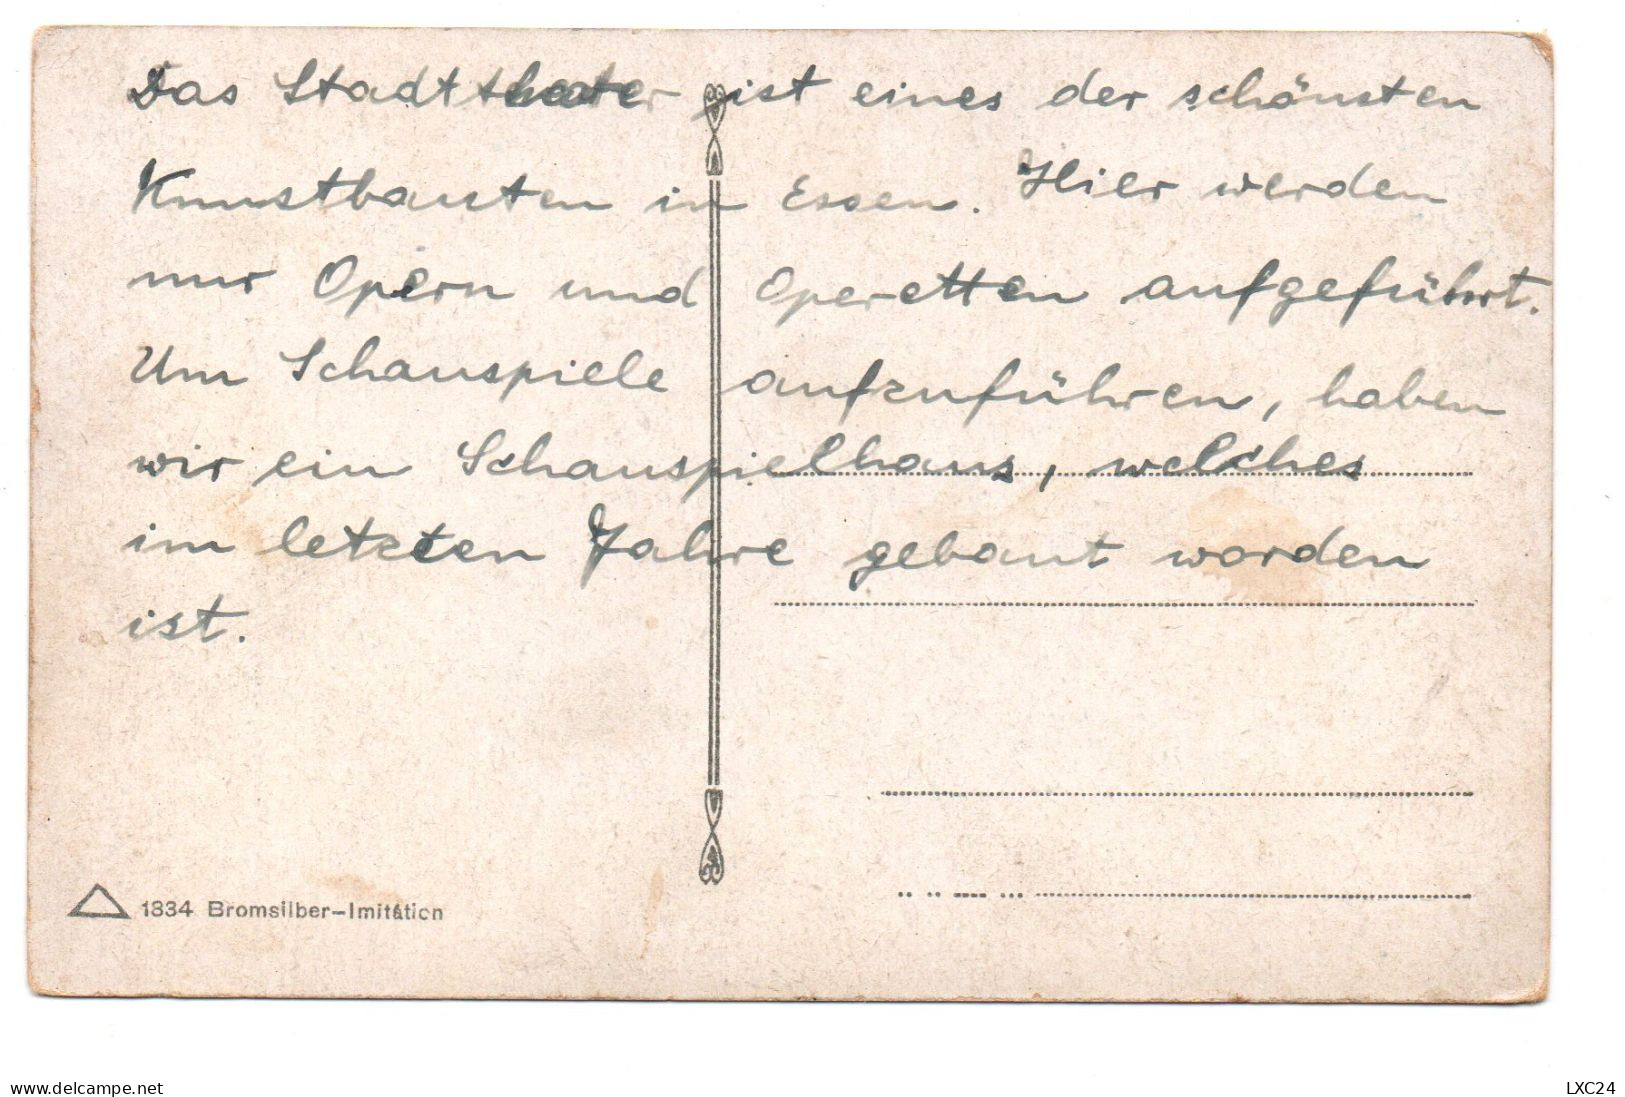 Das Stadttheater ist eines der schönsten
Kunstbauten in Essen. Hier werden
nur Opern und Operetten aufgeführt.
Um Schauspiele aufzuführen, haben
wir ein Schauspielhaus, welches
im letzten Jahre gebaut worden
ist.
1834 Bromsilber-Imitation
www.delcampe.net
LXC24